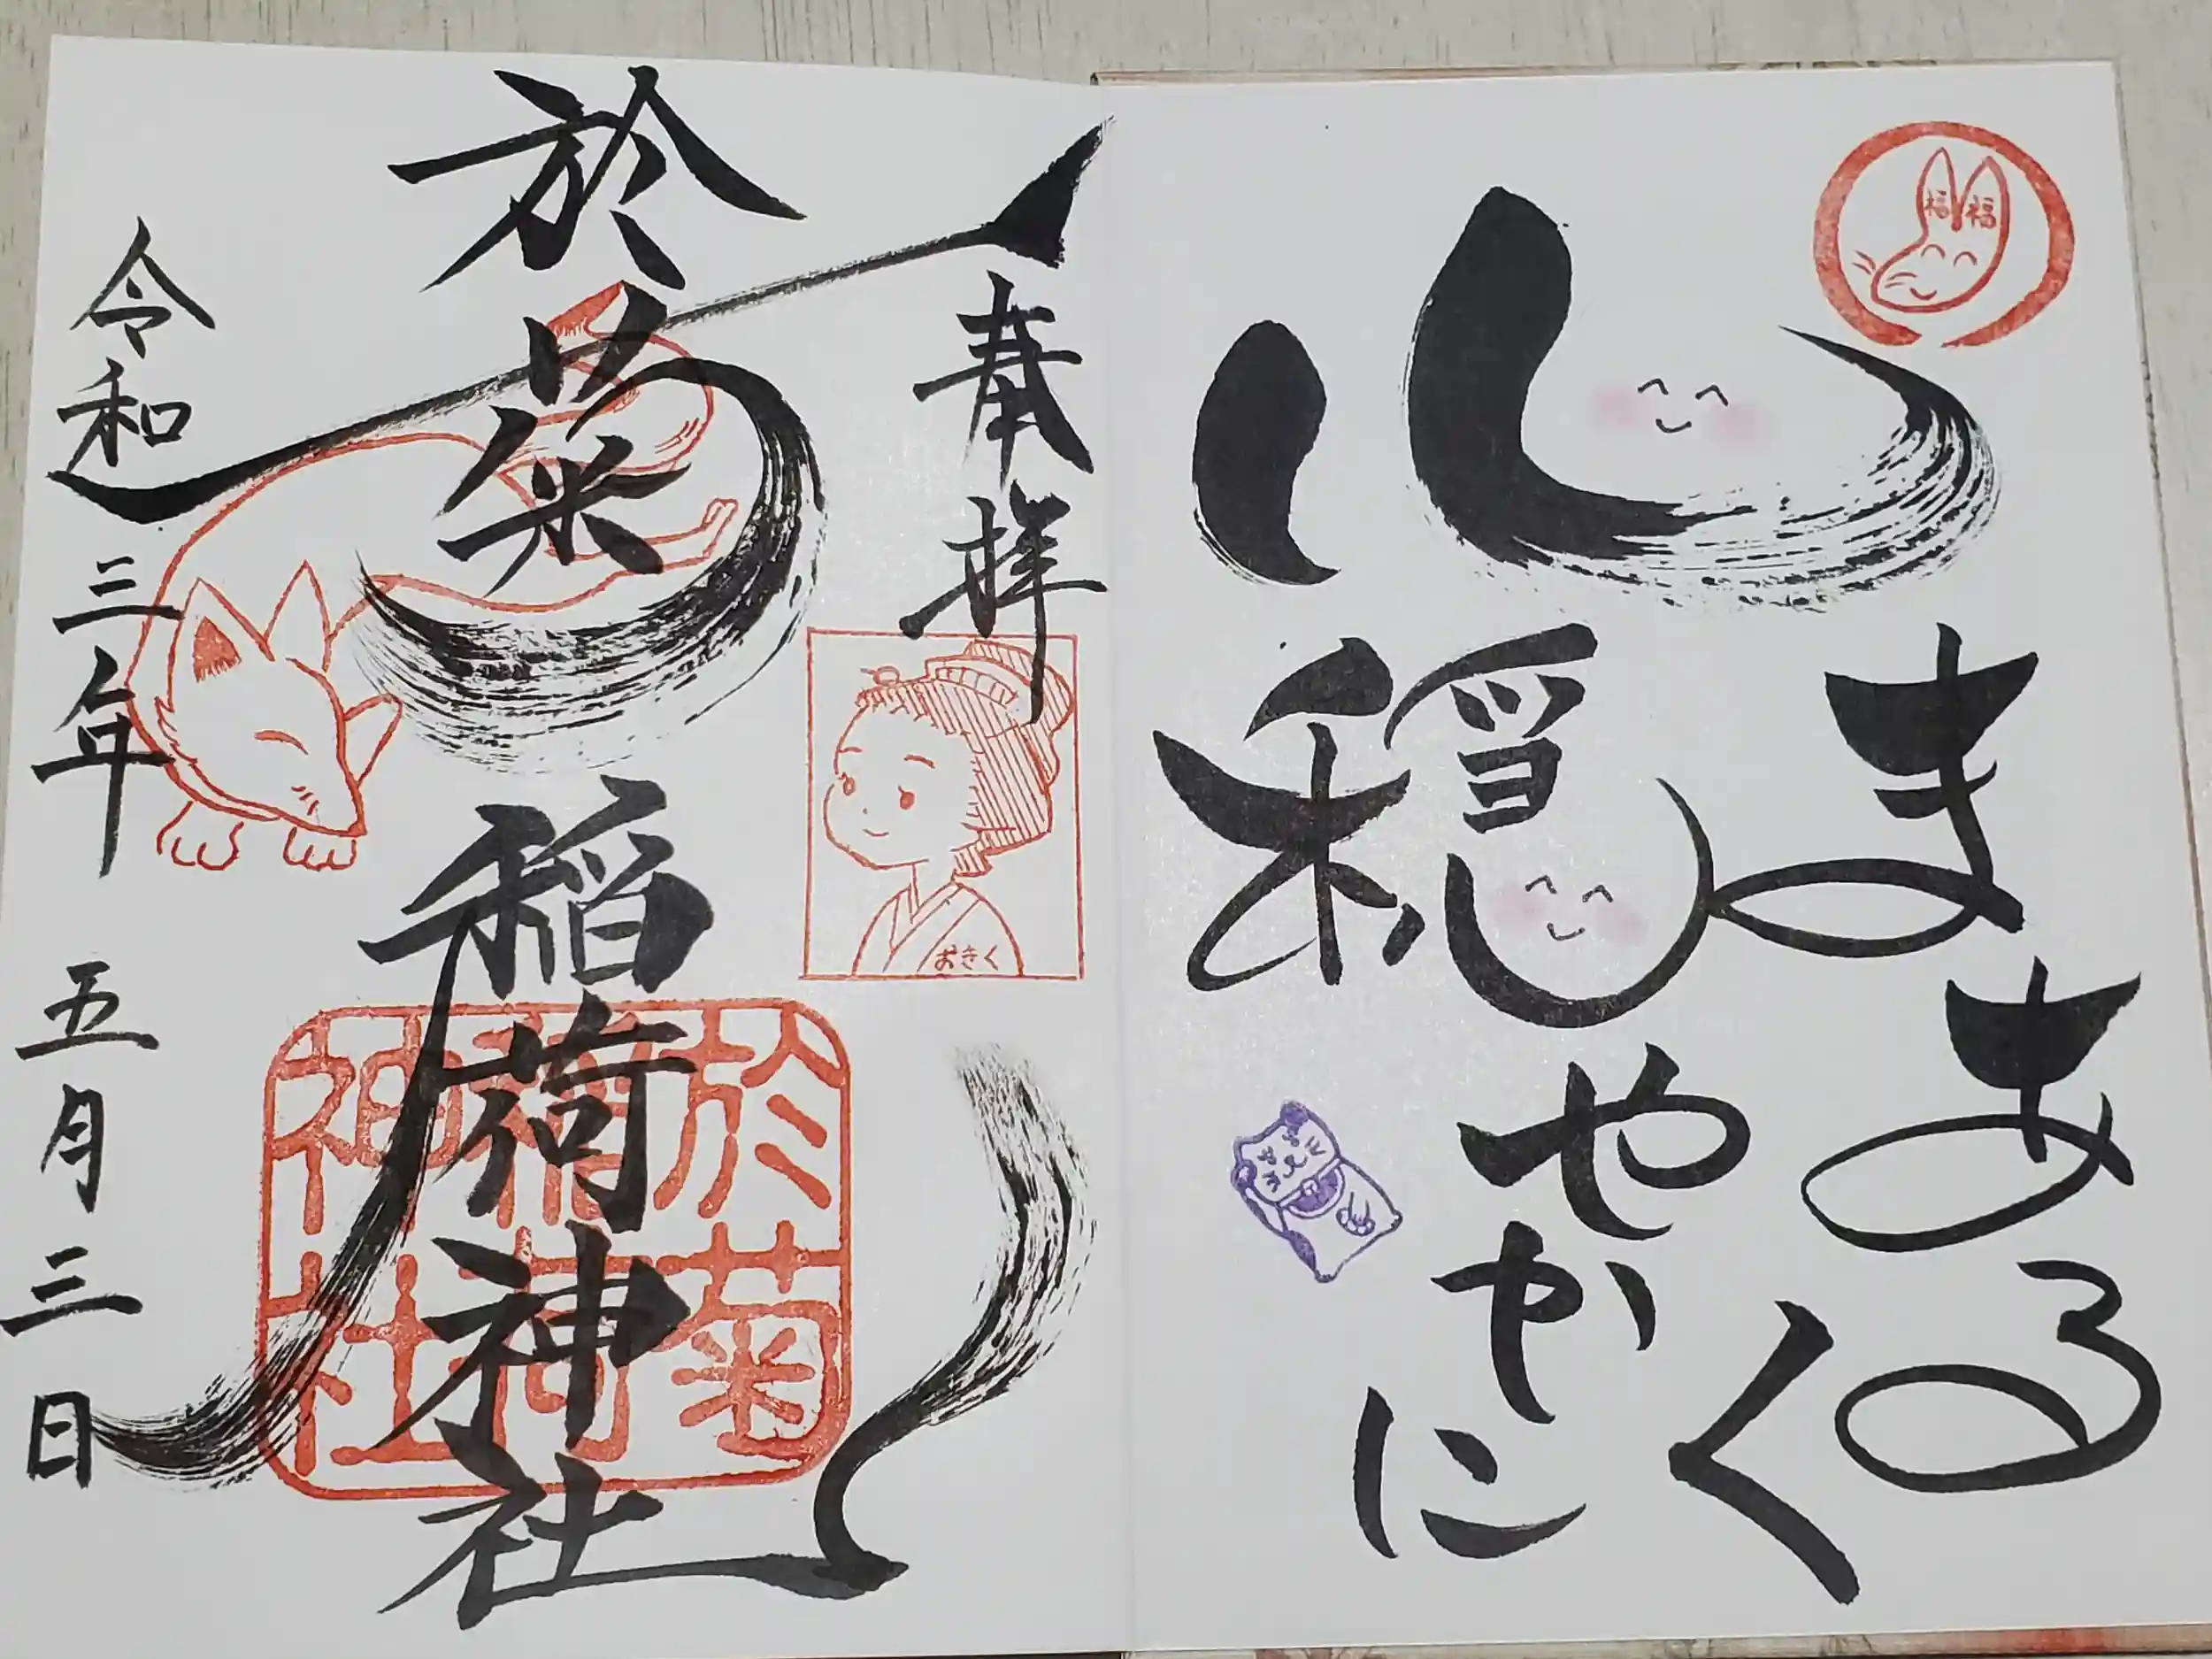 福福
心
まあるく
穏やかに
奉拝
おきく
於菊稲荷神社
於菊
稲荷
神社
令和三年五月三日